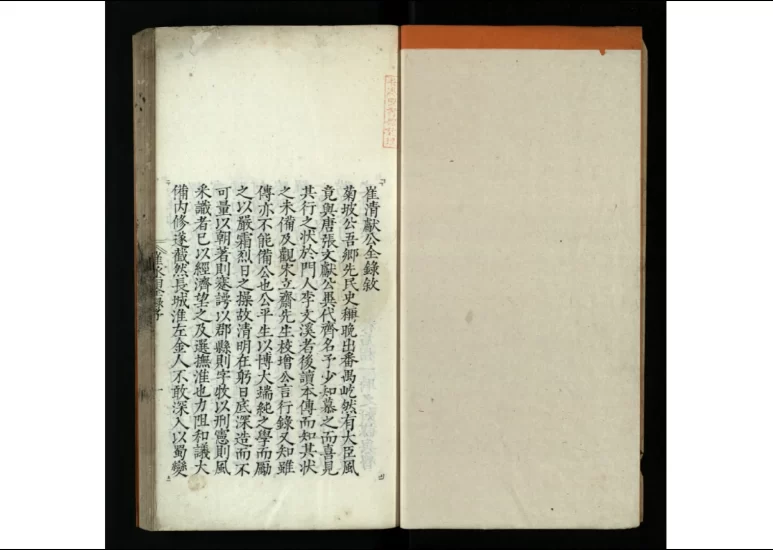 崔清獻公全錄敘
菊坡公吾鄉先民史稱晚出番禺屹然有大臣風
竟與唐張文獻公異代齊名予少知慕之而喜見
其行之狀於門人李文溪者後讀本傳而知其狀
之未備及觀宋立齋先生校增公言行錄又知雖
傳亦不能備公也公平生以博大端純之學而勵
之以嚴霜烈日之操故清明在躬日底深造而不
可量以朝著則蹇諤以郡縣則字牧以刑憲則風
釆識者已以經濟望之及選撫淮也力阻和議大
備內修遂截然長城淮左金人不敢深入以蜀變